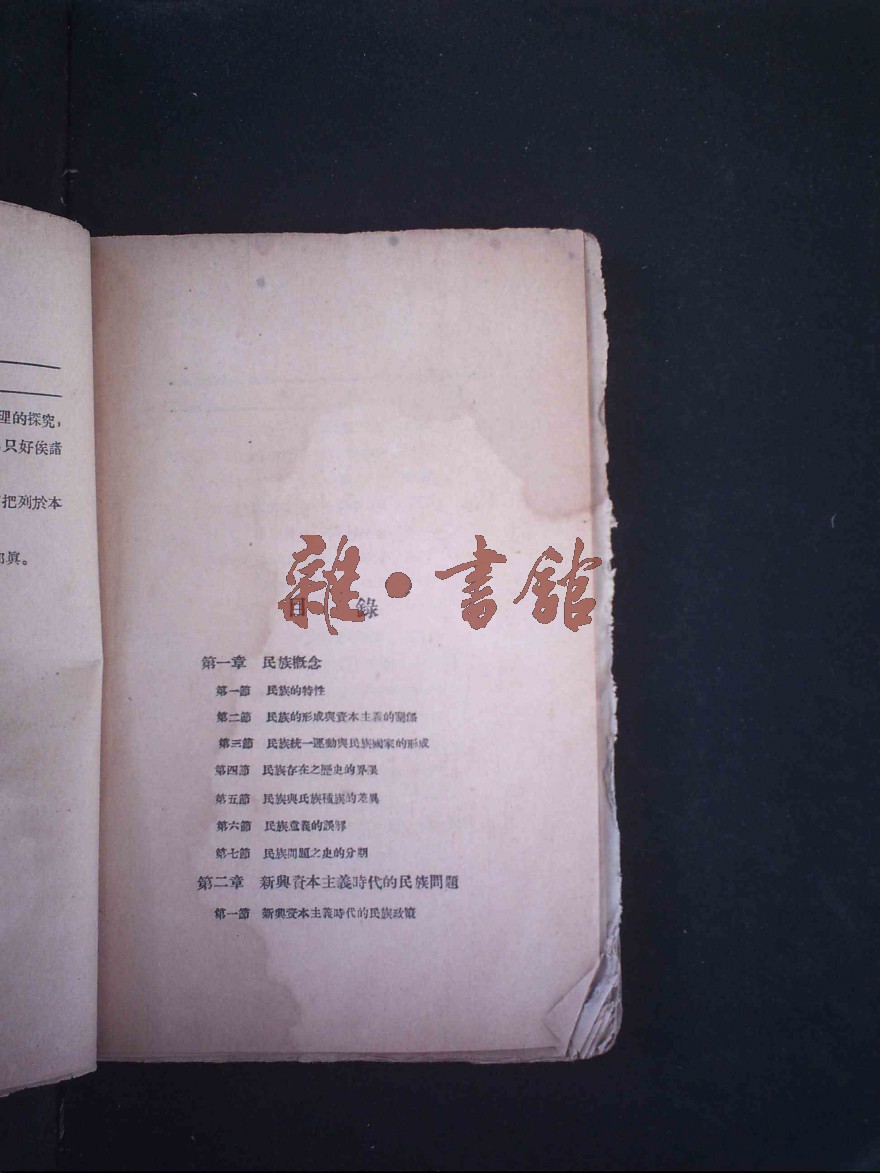 理的探究，
只好俟諸
把列於本
眞。
雜·書館
目 錄
第一章 民族概念
第一節 民族的特性
第二節 民族的形成與資本主義的關係
第三節 民族統一運動與民族國家的形成
第四節 民族存在之歷史的界限
第五節 民族與氏族種族的差異
第六節 民族意義的誤解
第七節 民族問題之史的分期
第二章 新興資本主義時代的民族問題
第一節 新興資本主義時代的民族政策